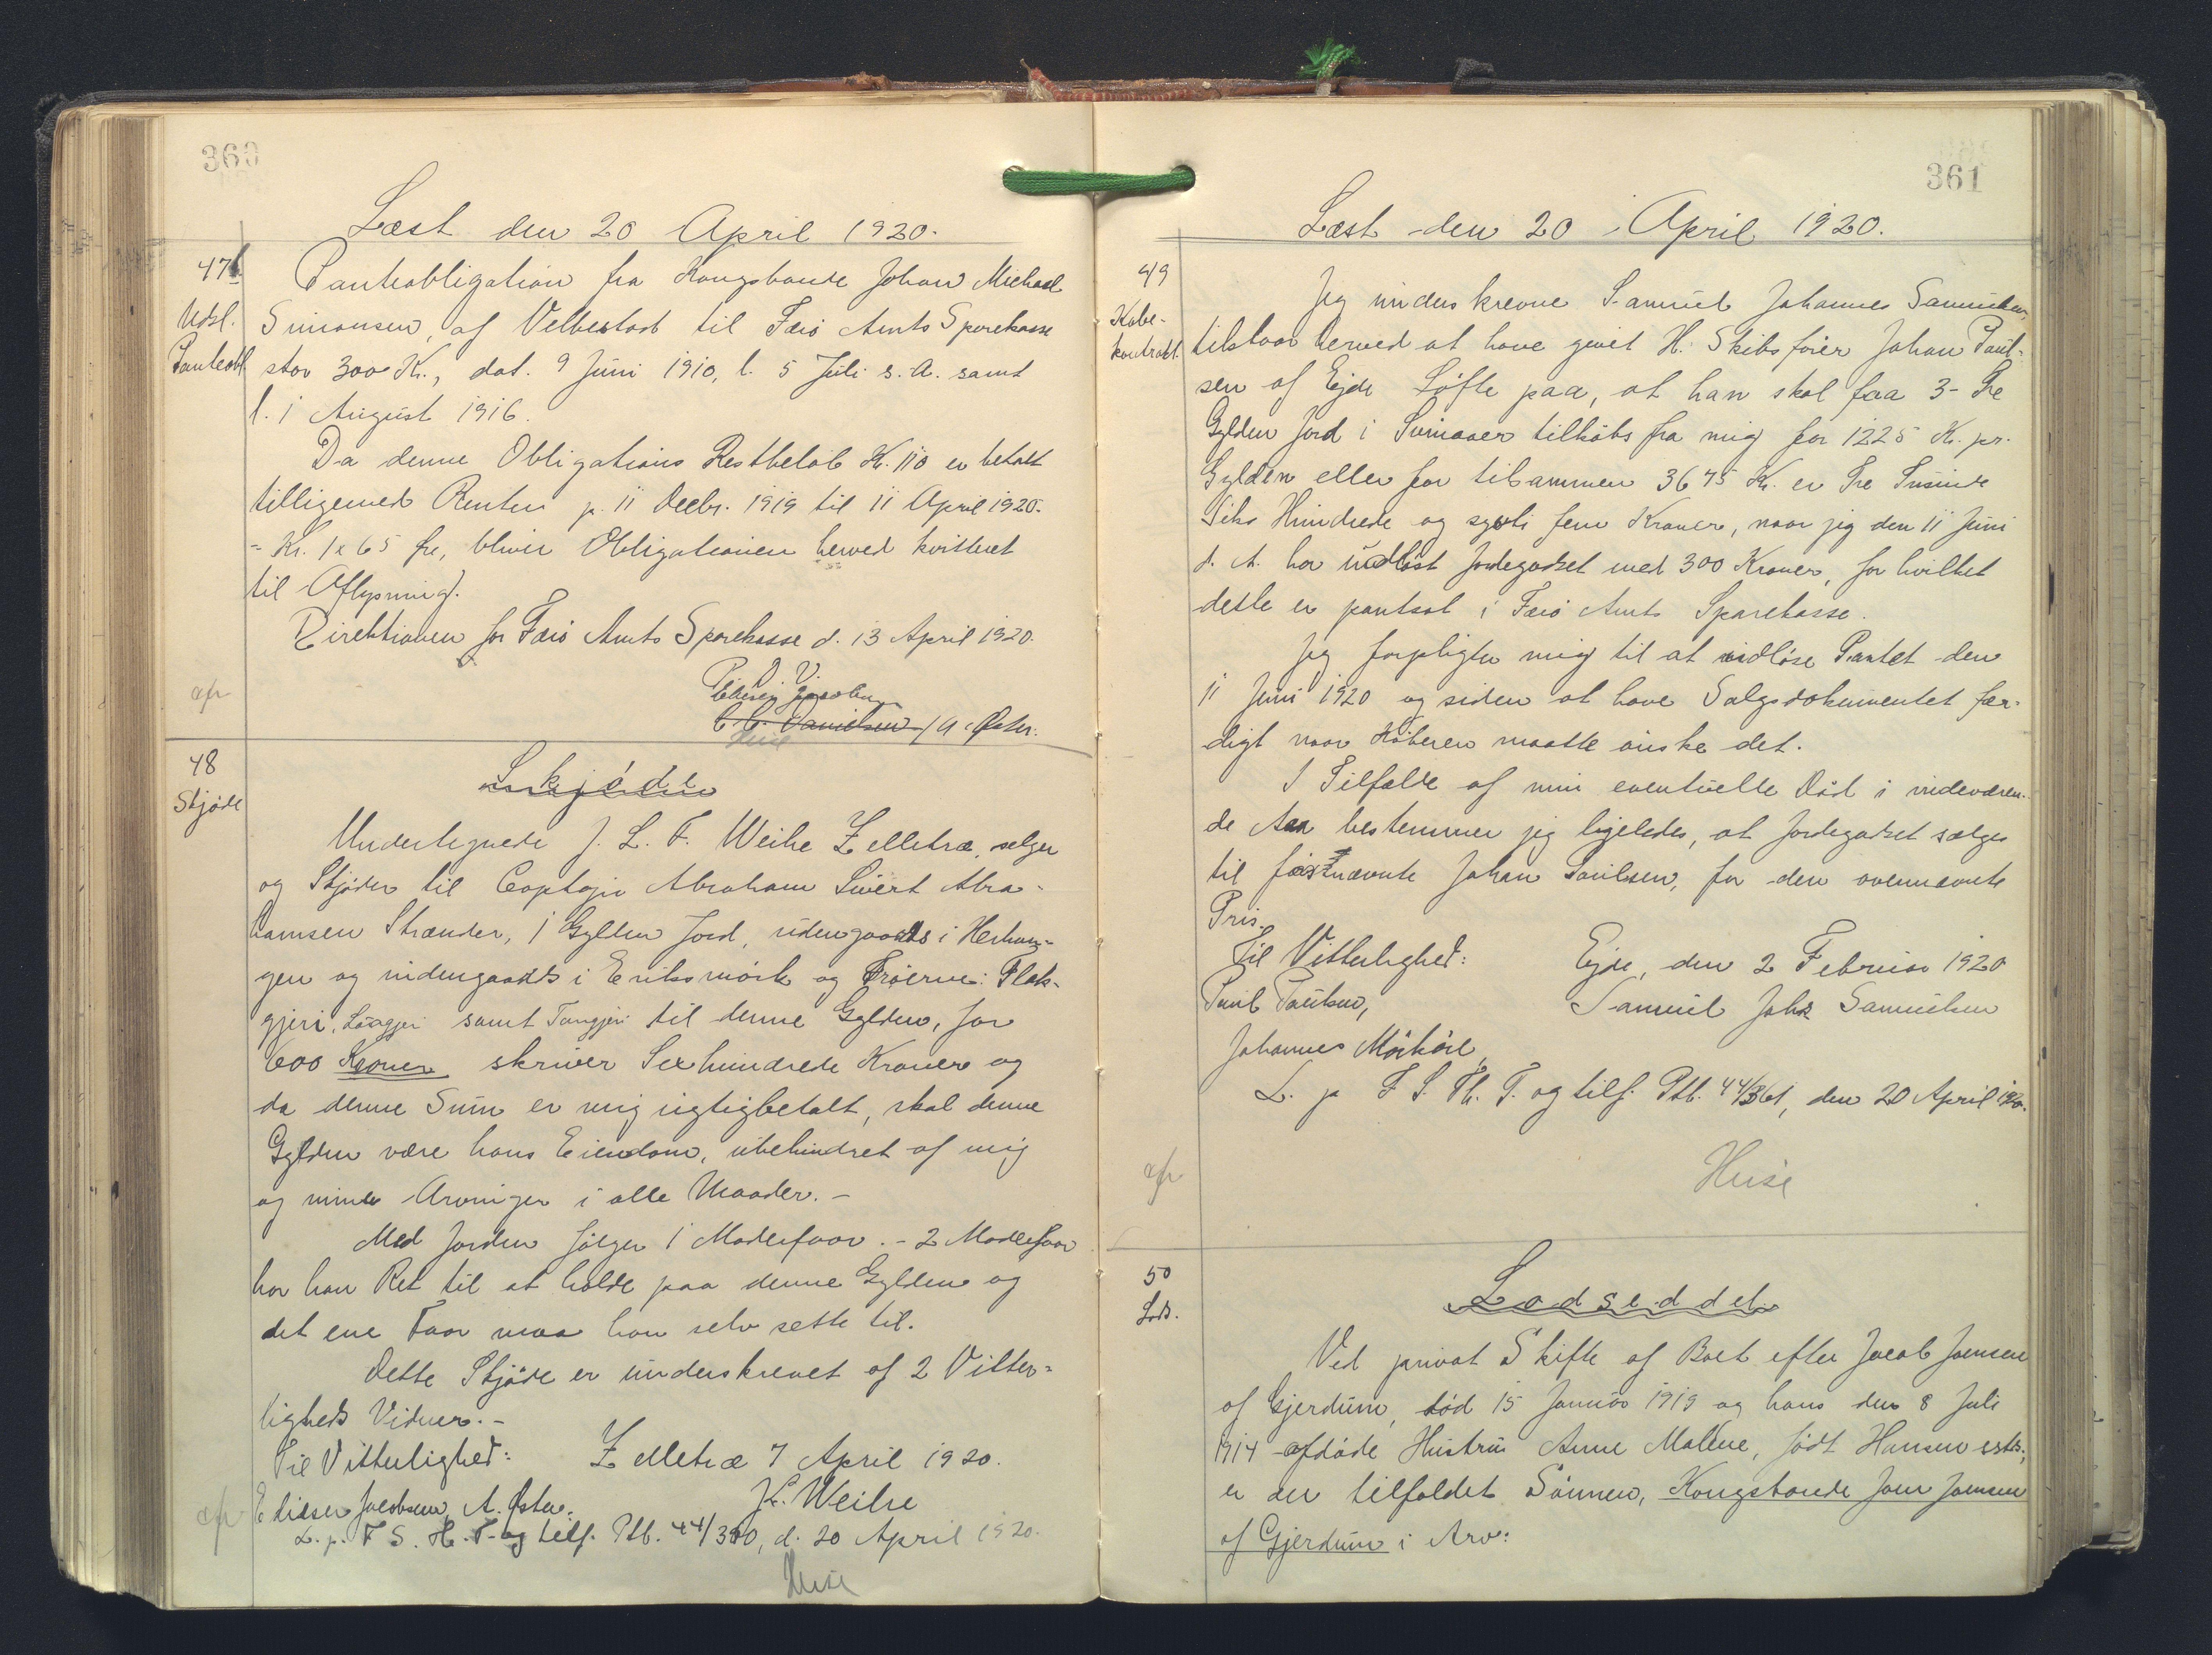 360
Læst den 20 April 1920.
47
Udsl.
Panteobl.
Panteobligation fra Kongsbonde Johan Michael
Simonsen, af Velbestad til Færø Amts Sparekasse
stor 300 Kr., dat. 9 Juni 1910, l. 5 Juli s. A. samt
l. 1 August 1916.
Da denne Obligations Restbeløb Kr. 110 er betalt
tilligemed Renten p. 11 Decbr. 1919 til 11 April 1920.
= Kr. 1 65 Øre, bliver Obligationen herved kvitteret
til Aflysning.
Direktionen for Færø Amts Sparekasse d. 13 April 1920.
D. V.
C. C. Danielsen / A. Øster.
Heise
48
Skjøde
Skjøde
Undertegnede J. L. F. Weihe Zelletræ, selger
og Skjøder til Captajn Abraham Sivert Abra-
hamsen Strænder, 1 Gylden Jord, udengaards i
gen og indengaards i Eriksmørk og Trøerne: Flat-
gjeri, samt Tangjeri til denne Gylden, for
600 Kroner skriver Sexhundrede Kroner og
da denne Sum er mig rigtigbetalt, skal denne
Gylden være hans Eiendom, ubehindret af mig
og mine Arvinger i alle Maader. -
Med Jorden følger 1 Moderfaar. - 2 Moderfaar
har han Ret til at holde paa denne Gylden og
det ene Faar maa han selv sette til.
Dette Skjøde er underskrevet af 2 Vitter-
ligheds Vidner. -
Til Vitterlighed: Zelletræ 7 April 1920.
Jacobsen, A. Øster. J. Weihe
L. p. F. S. H. T. og tilf. Ptb. 44/360, d. 20 April 1920.
Heise
361
Læst den 20 April 1920.
49
Købe-
kontrakt.
Jeg underskrevne Samuel Johannes Samuelsen
tilstaar herved at have givet H. Skibsfører Johan Paul-
sen af Ejde Løfte paa, at han skal faa 3 - Tre
Gylden Jord i Svinaaer tilkøbs fra mig for 1225 Kr. pr.
Gylden eller for tilsammen 3675 Kr. er Tre Tusinde
Seks Hundrede og syvti fem Kroner, naar jeg den 11 Juni
d. A. har udløst Jordegodset med 300 Kroner, for hvilket
dette er pantsat i Færø Amts Sparekasse.
Jeg forpligter mig til at indløse Pantet den
11 Juni 1920 og siden at have Salgsdokumentet fær-
digt naar Køberen maatte ønske det.
I Tilfælde af min eventuelle Død i indeværen-
de Aar bestemmer jeg ligeledes, at Jordegodset sælges
til førstnævnte Johan Paulsen, for den ovennævnte
Pris.
Til Vitterlighed: Ejde, den 2 Februar 1920
Poul Paulsen, Samuel Johs Samuelsen
Johannes Mørkøre,
L. p. F. S. Th. T. og tilf. Ptb. 44/361, den 20 April 1920.
Heise
50
Lods.
Lodseddel
Ved privat Skifte af Boet efter Jacob Joensen
af Gjerdum, død 15 Januar 1919 og hans den 8 Juli
1914 afdøde Hustru Anne Malene, født Hansen
er der tilfaldet Sønnen, Kongsbonde Joen Joensen
af Gjerdum i Arv: